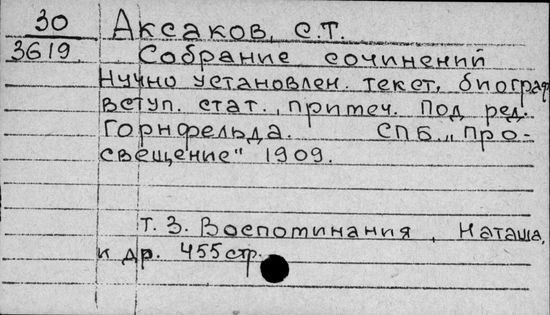 30 Аксаков, С.Т.
3619 Собрание сочинений
Нучно установлен. текст, биограф
вступ. стат., примеч. под ред.
Горнфельда. СПБ „Про-
свещение" 1909.
Т. 3. Воспоминания, Наташа,
и др. 455 стр.